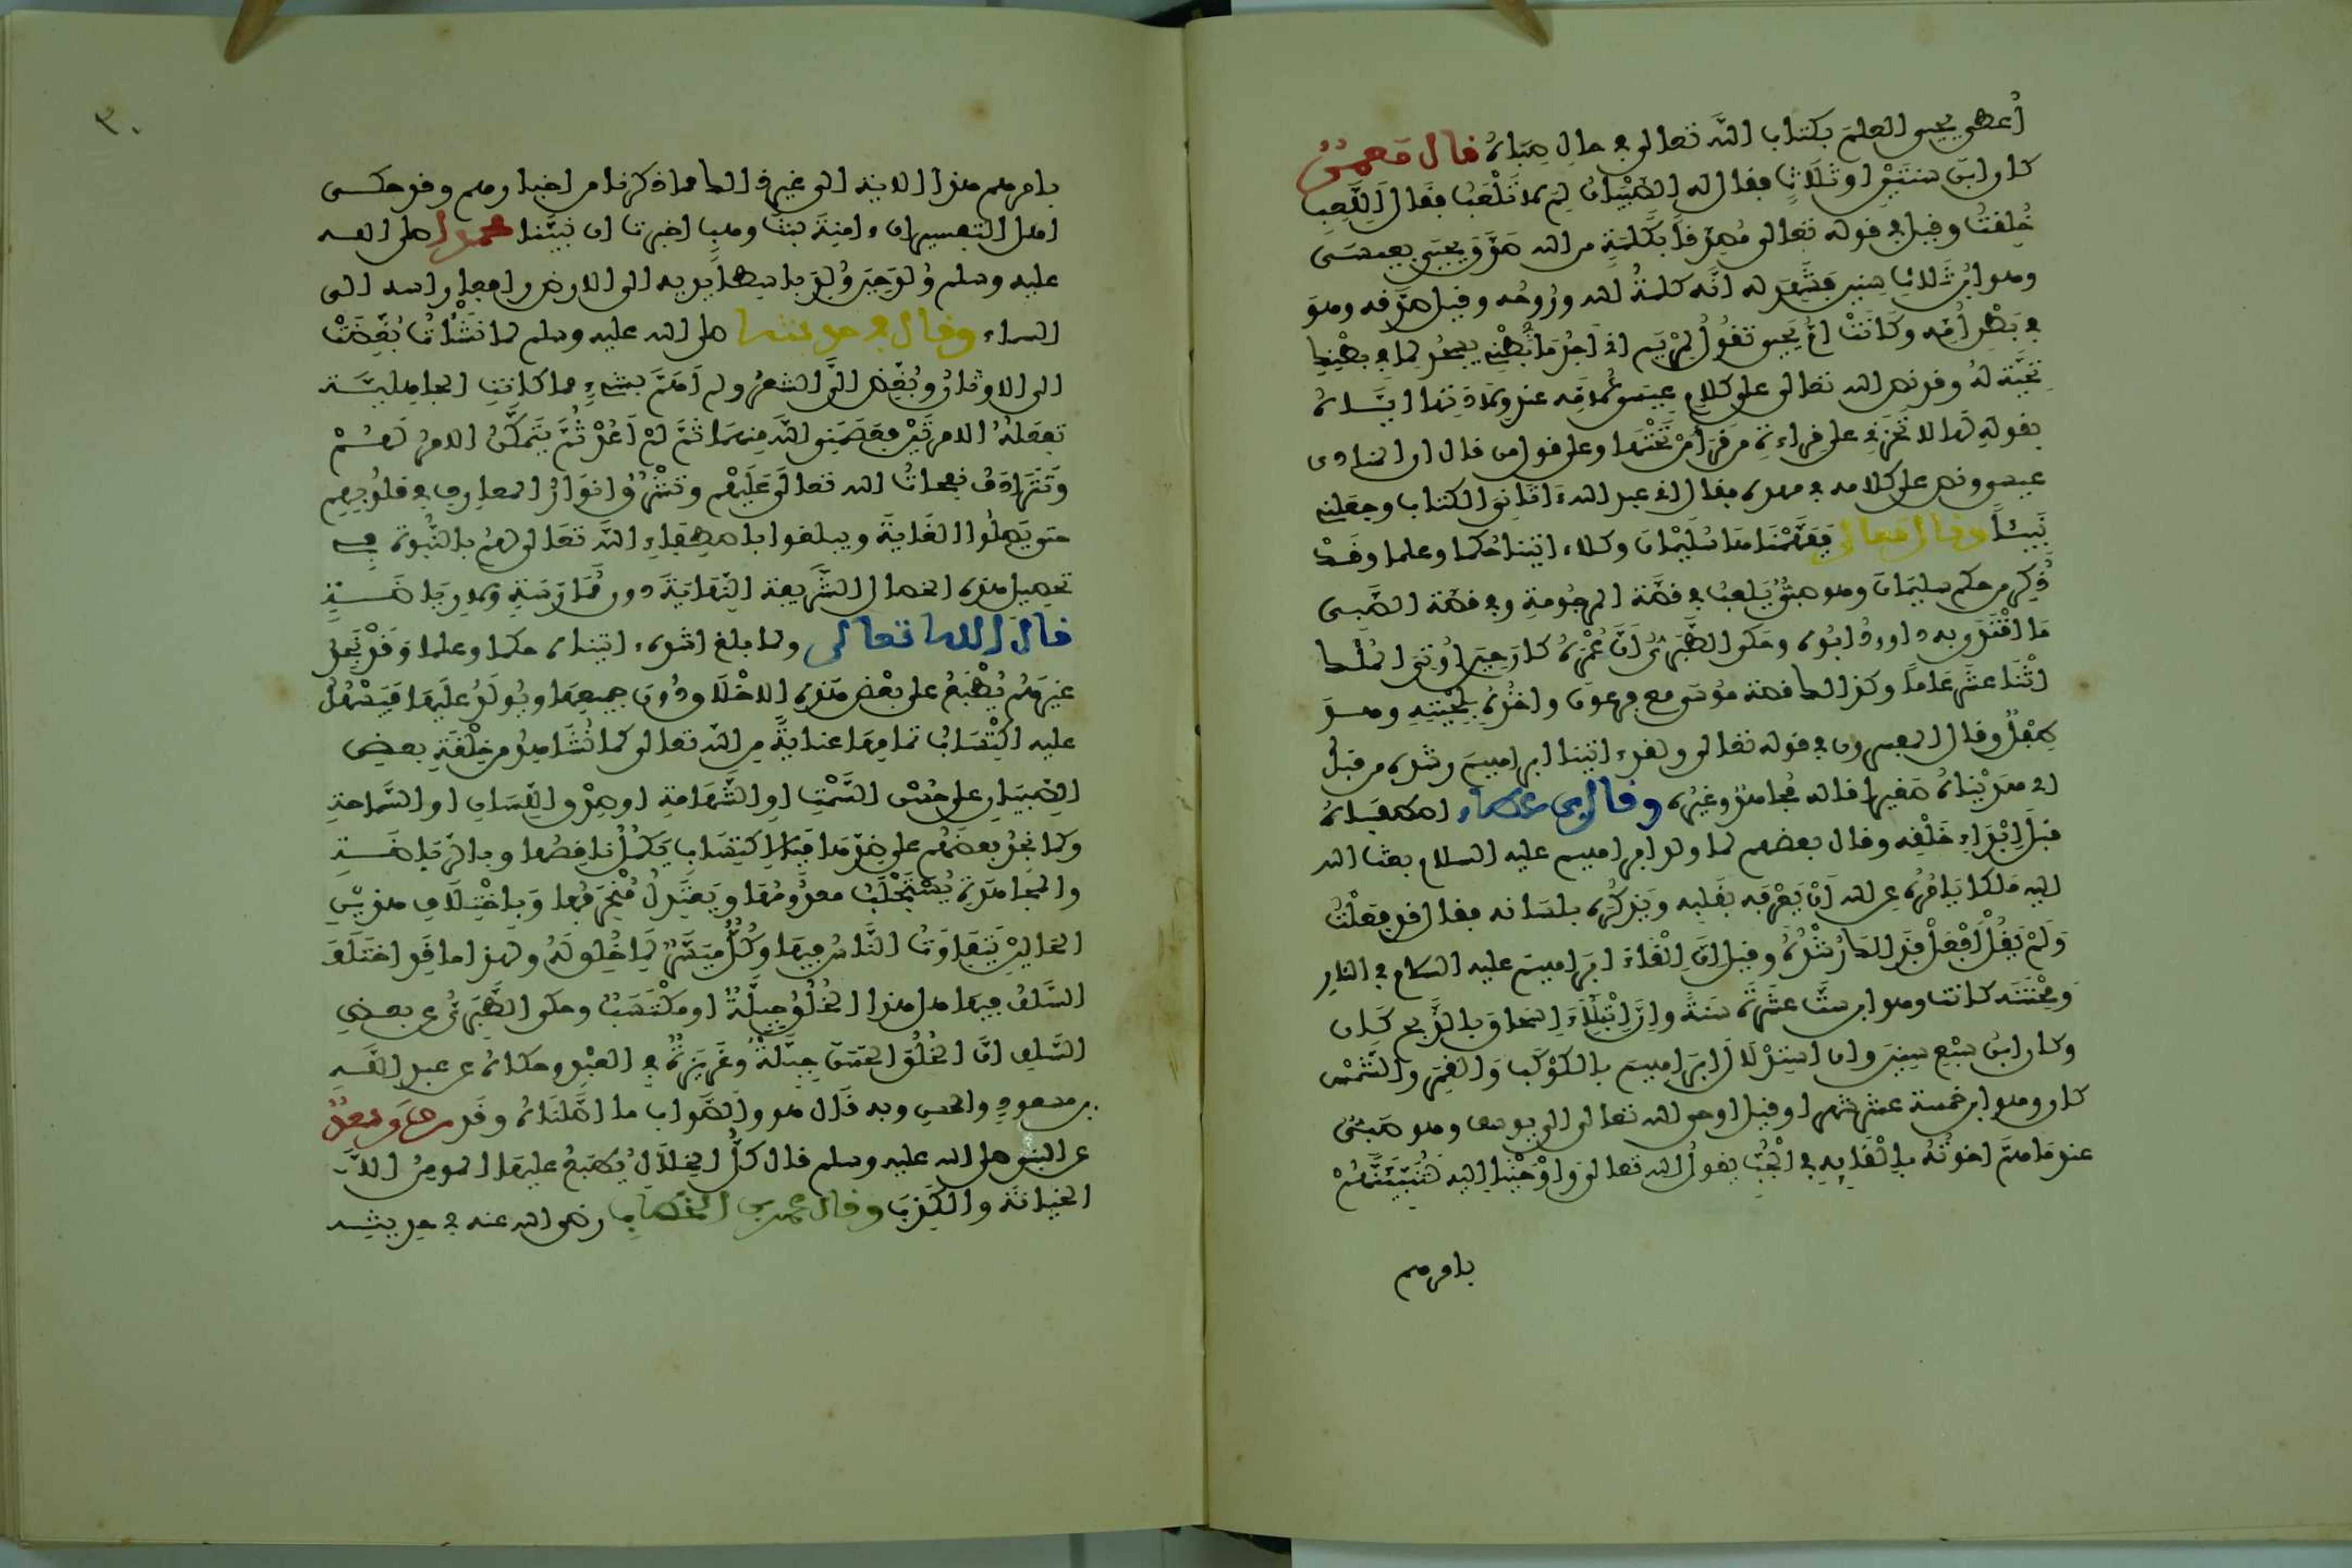 أُعطي يحيى العلم بكتاب الله تعالى في حال صباه قال معمر
كان ابن سنتين او ثلاث فقال له الصبيان لم لا تلعب فقال أللعب
خُلقت وقيل في قوله تعالى مصدقا بكلمة من الله صدّق يحيى بعيسى
وهو ابن ثلاث سنين فشهد له انه كلمة الله وروحه وقيل صدقه وهو
في بطن أمه وكانت ام يحيى تقول لمريم اني اجد ما في بطني يسجد لما في بطنك
تحية له وقد نص الله تعالى على كلام عيسى لأمه عند ولادتها اياه
بقوله لها لا تحزني على قراءة من قرأ من تحتها وعلى قول من قال ان المنادى
عيسى ونص على كلامه في مهده فقال اني عبد الله ءاتاني الكتاب وجعلني
نبيئا وقال تعالى ففهمناها سليمان وكلا ءاتينا حكما وعلما وقد
ذُكر من حكم سليمان وهو صبي يلعب في قصة المرجومة وفي قصة الصبي
ما اقتدى به داوود ابوه وحكى الطبري أن عمره كان حين أوتي الملك
اثنا عشر عاما وكذلك قصة موسى مع فرعون واخذه بلحيته وهو
طفل وقال المفسرون في قوله تعالى ولقد ءاتينا ابراهيم رشده من قبل
اي هديناه صغيرا قاله مجاهد وغيره وقال ابن عطاء اصطفاه
قبل إبداء خلقه وقال بعضهم لما ولد ابراهيم عليه السلام بعث الله
اليه ملكا يأمره عن الله أن يعرفه بقلبه ويذكره بلسانه فقال قد فعلت
ولم يقل أفعل فذلك رشده وقيل إن إلقاء ابراهيم عليه السلام في النار
ومحنته كانت وهو ابن ست عشرة سنة وإن ابتلاء اسحاق بالذبح كان
وهو ابن سبع سنين وان استدلال ابراهيم بالكوكب والقمر والشمس
كان وهو ابن خمسة عشر شهرا وقيل اوحى الله تعالى الى يوسف وهو صبي
عند ما هم اخوته بإلقائه في الجب يقول الله تعالى وأوحينا اليه لتنبئنهم
بامرهم
٣٠
بامرهم هذا الاية الى غير ذلك مما ذكرنا من اخبارهم وقد حكى
اهل التفسير ان ءامنة بنت وهب اخبرت ان نبينا محمدا صلى الله
عليه وسلم وُلد حين وُلد باسطا يديه الى الارض رافعا راسه الى
السماء وقال في حديثه صلى الله عليه وسلم لما نشأت بُغّضت
الي الاوثان وبُغّض الي الشعر ولم أهم بشيء مما كانت الجاهلية
تفعله الا مرتين فعصمني الله منهما ثم لم أعد ثم يتمكن الامر لهم
وتترادف نفحات الله تعالى عليهم وتشرق انوار المعارف في قلوبهم
حتى يصلوا الغاية ويبلغوا باصطفاء الله تعالى لهم بالنبوة في
تحصيل هذه الخصال الشريفة النهاية دون ممارسة ولا رياضة
قال الله تعالى ولما بلغ اشده ءاتيناه حكما وعلما وقد نجد
غيرهم يُطبع على بعض هذه الاخلاق دون جميعها ويولد عليها فيسهل
عليه اكتساب تمامها عناية من الله تعالى كما نشاهد من خلقة بعض
الصبيان على حسن السمت او الشهامة او صدق اللسان او السماحة
وكما نجد بعضهم على ضدها فبالاكتساب يكمل ناقصها وبالرياضة
والمجاهدة يُستجلب معدومها ويعتدل منحرفها وباختلاف هذين
الحالين يتفاوت الناس فيها وكل ميسر لما خُلق له ولهذا ما قد اختلف
السلف فيها هل هذا الخُلق جبلّة او مكتسب وحكى الطبري عن بعض
السلف ان الخُلق الحسن جبلة وغريزة في العبد وحكاه عن عبد الله
بن مسعود والحسن وبه قال هو والصواب ما اصّلناه وقد روى سعد
عن النبي صلى الله عليه وسلم قال كل الخلال يُطبع عليها المومن الا
الخيانة والكذب وقال عمر بن الخطاب رضى الله عنه في حديثه